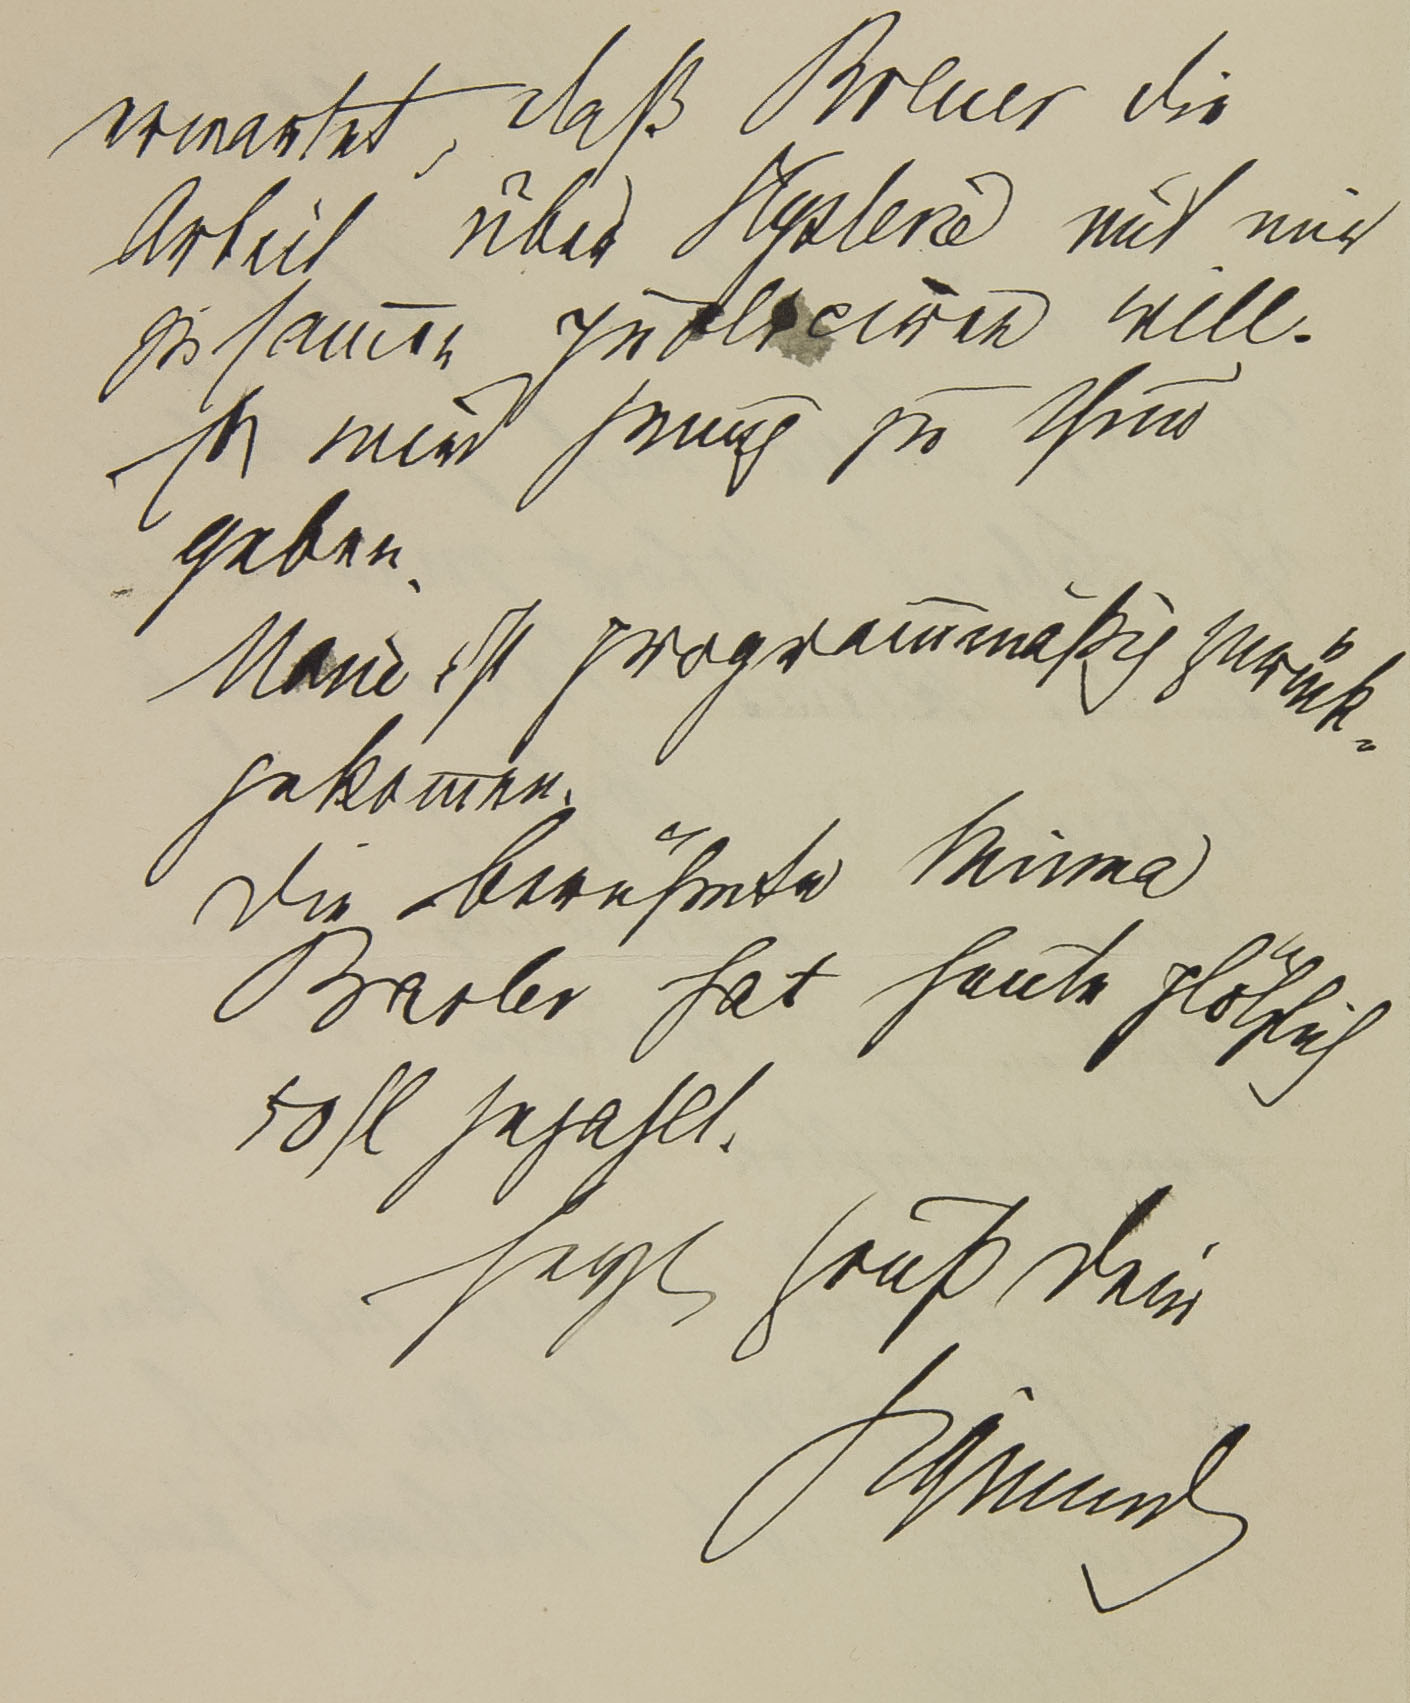 erwartet, daß Breuer die
Arbeit über Hysterie mit mir
zusam̅en publiciren will.
Es wird genug zu thun
geben.
Marie ist programmäßig zurück-
gekom̅en.
Die berühmte
hat heute plötzlich
50 fl gezahlt.
Herzl Gruß Dein
Sigmund